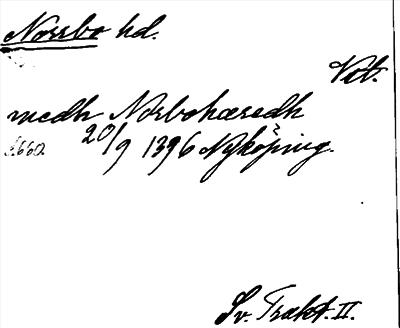 Norrbo hd.
Vst.
medh Norbohæredh
20/9 1396 Nyköping.
Sv. Trakt. II.